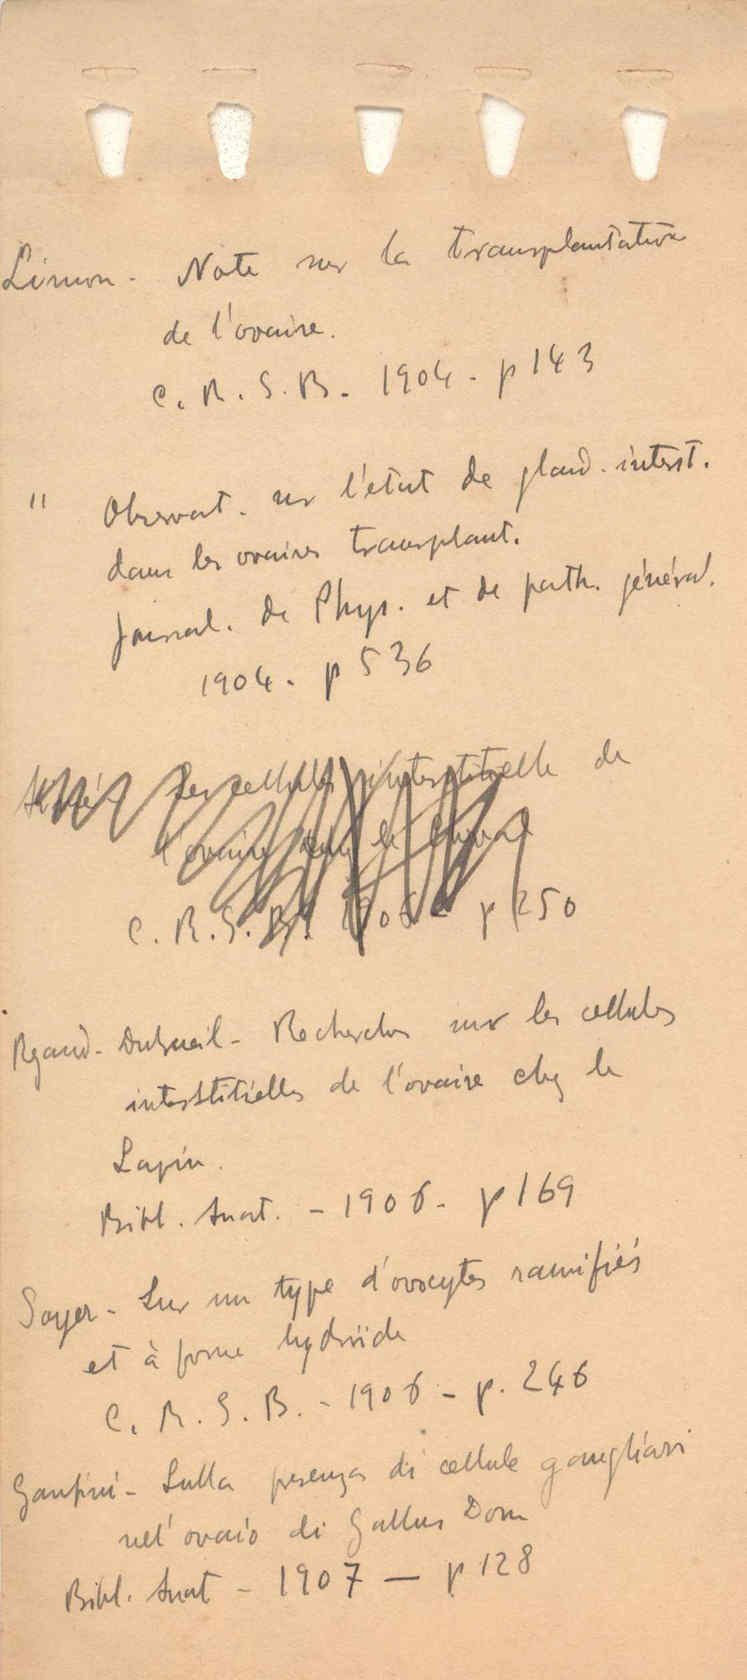 Limon - Note sur la transplantation
de l'ovaire.
C. R. S. B. 1904 - p 143
" Observat. sur l'état de gland. interst.
dans les ovaires transplant.
Journal. de Phys. et de path. général.
1904 - p 536
Les cellules interstitielle de
l'ovaire chez le
C. R. S. B. 1906 - p 250
Regaud - Dubreuil - Recherches sur les cellules
interstitielles de l'ovaire chez le
Lapin.
Bibl. Anat. - 1906 - p 169
Soyer - Sur un type d'ovocytes ramifiés
et à forme hydroïde
C. R. S. B. - 1906 - p. 246
Ganfini - Sulla presenza di cellule gangliari
nell'ovaio di Gallus Dom
Bibl. Anat - 1907 - p 128